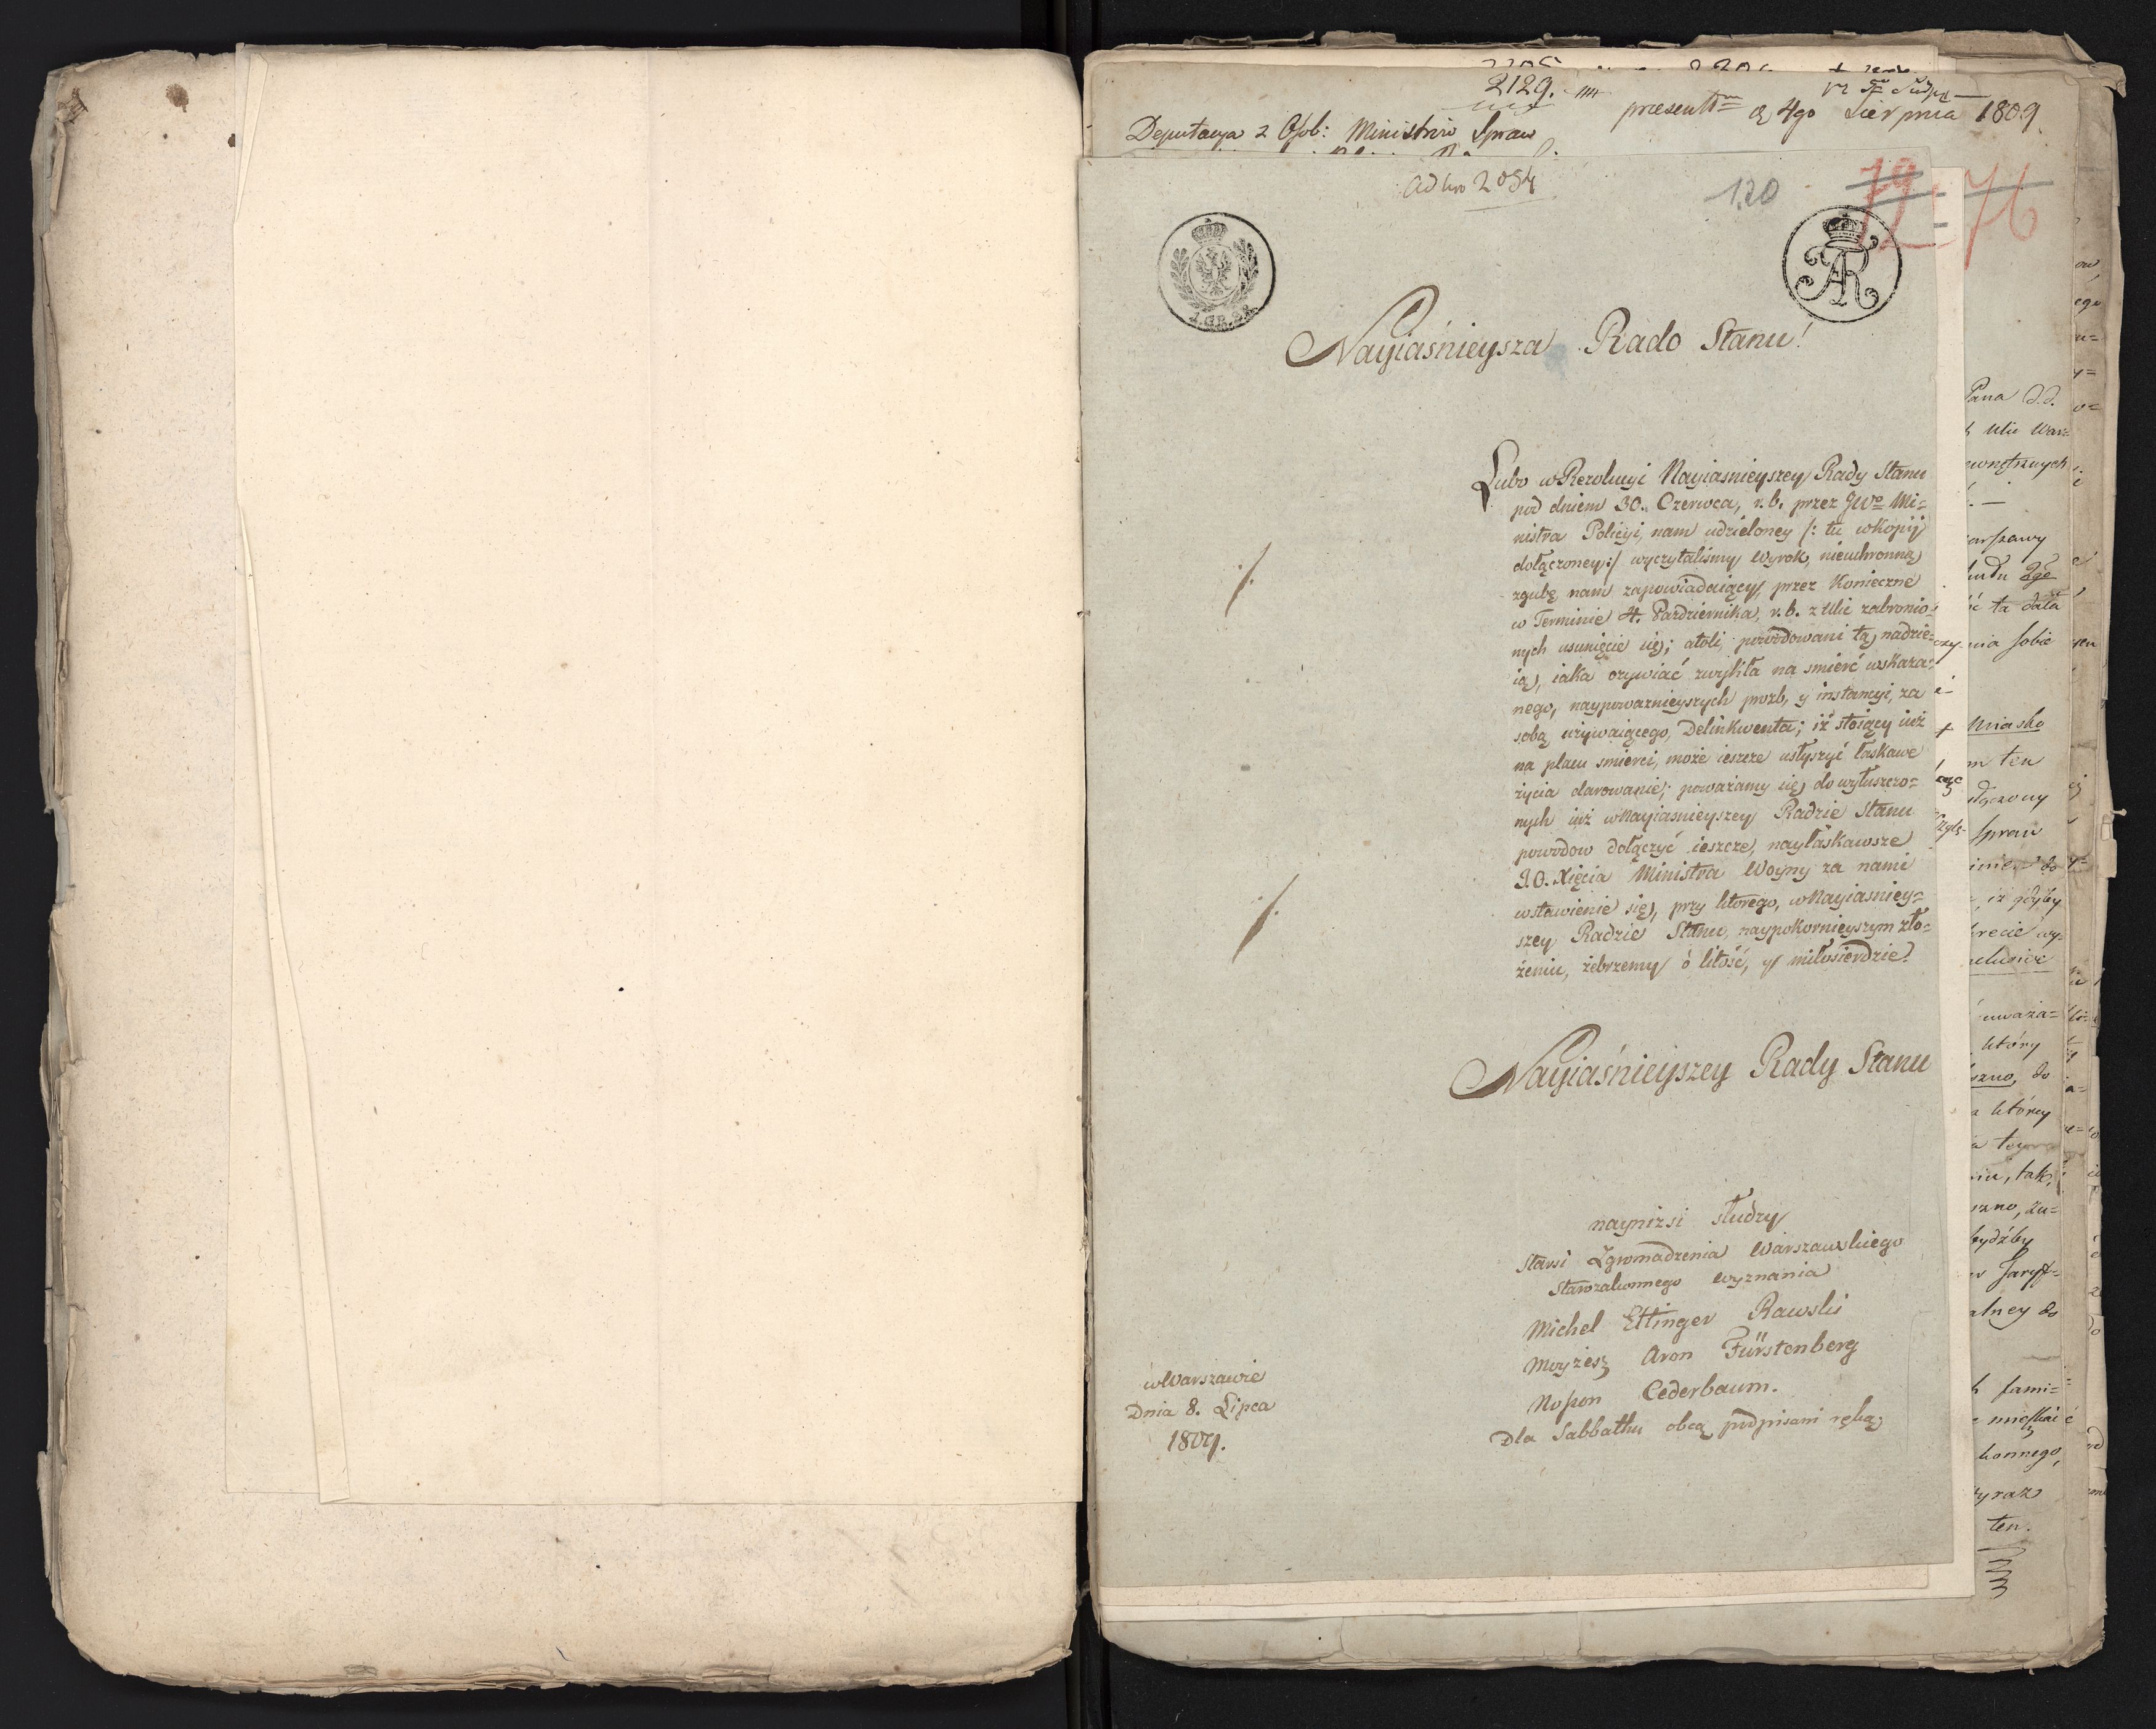 2129.
praesentm d 4go Sierpnia 1809
Deputacya z Osób: Ministrów Spraw
Ad Nro 2054
120
79
72
76
1.GR.SR.
AR
Nayiaśnieysza Rado Stanu!
Lubo w Rezolucyi Nayiasnieyszey Rady Stanu
pod dniem 30. Czerwca, r.b. przez JWo Mi=
nistra Policyi, nam udzieloney /: tu w Kopij
dołączoney :/ wyczytalismy Wyrok, nieuchronną
zgubę nam zapowiadaiący, przez Konieczne
w Terminie 4. Pazdziernika, r.b. z Ulic zabronio=
nych usunięcie się; atoli powodowani tą nadzie=
ią, iaka ozywiać zwykła na smierć wskaza=
nego, naypowaznieyszych prozb, y instancyi, za
sobą uzywaiącego, Delinkwenta; iż stoiący iuż
na placu smierci, może ieszcze usłyszyć łaskawe
życia darowanie; poważamy się do wyłuszczo=
nych iuż w Nayiasnieyszey Radzie Stanu
powodow dołączyć ieszcze, nayłaskawsze
J.O. Xięcia Ministra Woyny za nami
wstawienie się, przy ktorego, w Nayiasniey=
szey Radzie Stanu, naypokornieyszym zło=
żeniu, żebrzemy ó litość, y miłosierdzie.
Nayiaśnieyszey Rady Stanu
naynizsi słudzy
Starsi Zgromadzenia Warszawskiego
Starozakonnego wyznania
Michel Ettinger Rawski
Moyżesz Aron Fürstenberg
Noson Cederbaum.
Dla Sabbathu obcą podpisani ręką
w Warszawie
Dnia 8. Lipca
1809.
Pana d.d.
Miasko
m ten
Spraw
który
ten.